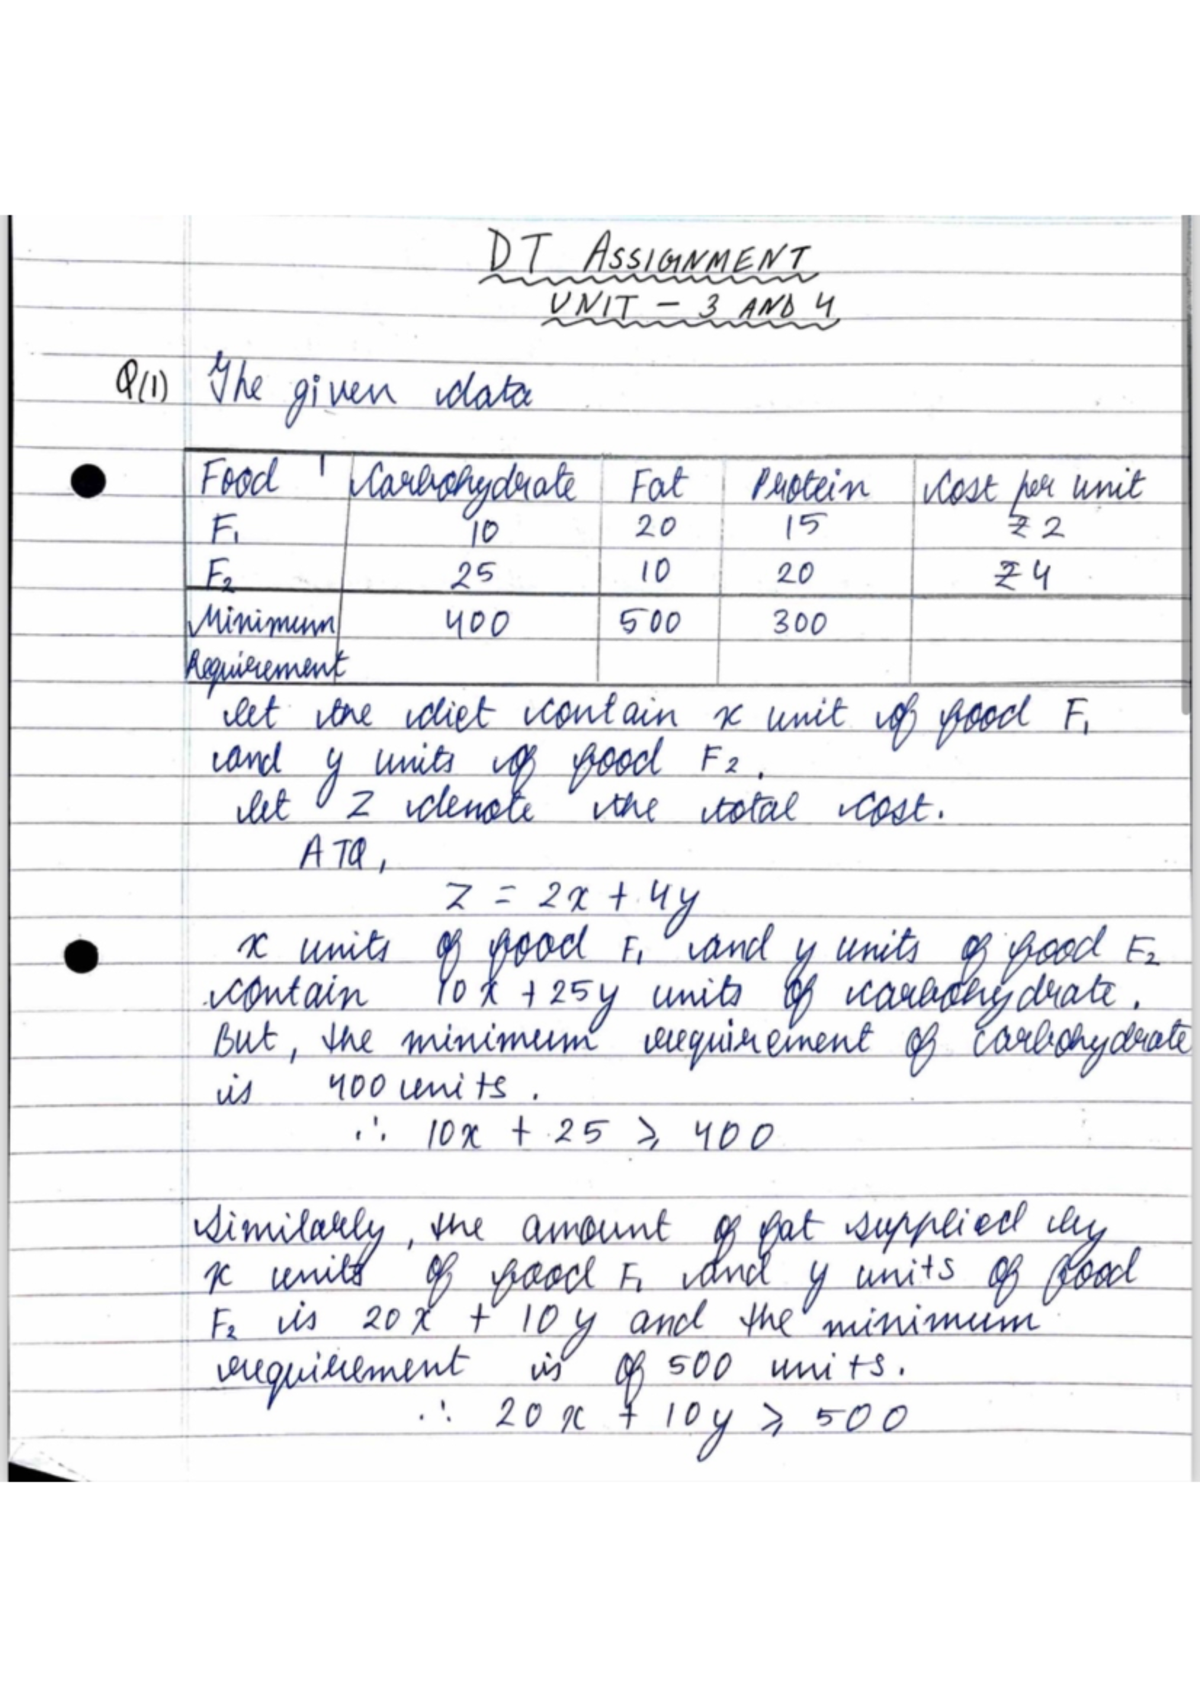 DT ASSIGNMENT
UNIT - 3 AND 4
Q(1) The given data
Food Carbohydrate Fat Protein Cost per unit
F₁ 10 20 15 ₹ 2
F₂ 25 10 20 ₹ 4
Minimum 400 500 300
Requirement
let the diet contain x unit of food F₁
and y units of food F₂.
let Z denote the total cost.
ATQ,
Z = 2x + 4y
x units of food F₁ and y units of food F₂
contain 10x + 25y units of carbohydrate.
But, the minimum requirement of carbohydrate
is 400 units.
∴ 10x + 25 ≥ 400
Similarly, the amount of fat supplied by
x units of food F₁ and y units of food
F₂ is 20x + 10y and the minimum
requirement is of 500 units.
∴ 20x + 10y ≥ 500